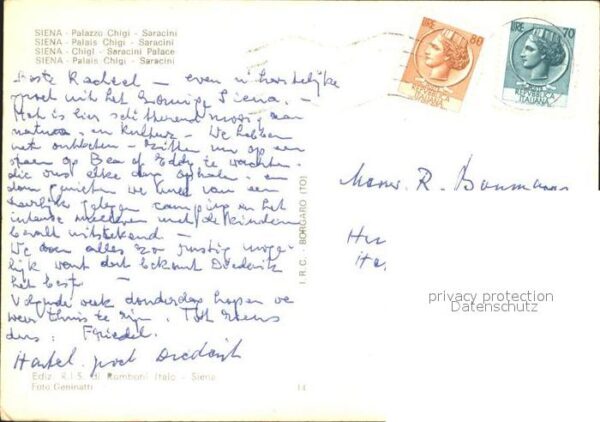 SIENA - Palazzo Chigi - Saracini
SIENA - Palais Chigi - Saracini
SIENA - Chigi - Saracini Palace
SIENA - Palais Chigi - Saracini
Beste Racheel - even 'n hartelijke
groet uit het zonnige Siena. -
Het is hier schitterend mooi aan
natuur - en kultuur - We hebben
net ontbeten - zitten nu op een
steen op Bea of Eddy te wachten -
die ons elke dag ophalen - en
dan genieten we hier van een
heerlijk gelegen camping en het
intense meeleven met de kinderen
bevalt uitstekend -
We doen alles zo rustig moge-
lijk want dat bekomt Diederik
het beste -
Volgende week donderdag hopen we
weer thuis te zijn. Tot ziens
dus : Friedel.
Hartel. groet Diederik
Ediz. R.I.S. di Romboni Italo - Siena
Foto Geninatti
14
I.R.C. - BORGARO (TO)
LIRE 80
REPUBBLICA
ITALIANA
LIRE 70
REPUBBLICA
ITALIANA
Mevr. R. Boumans
privacy protection
Datenschutz